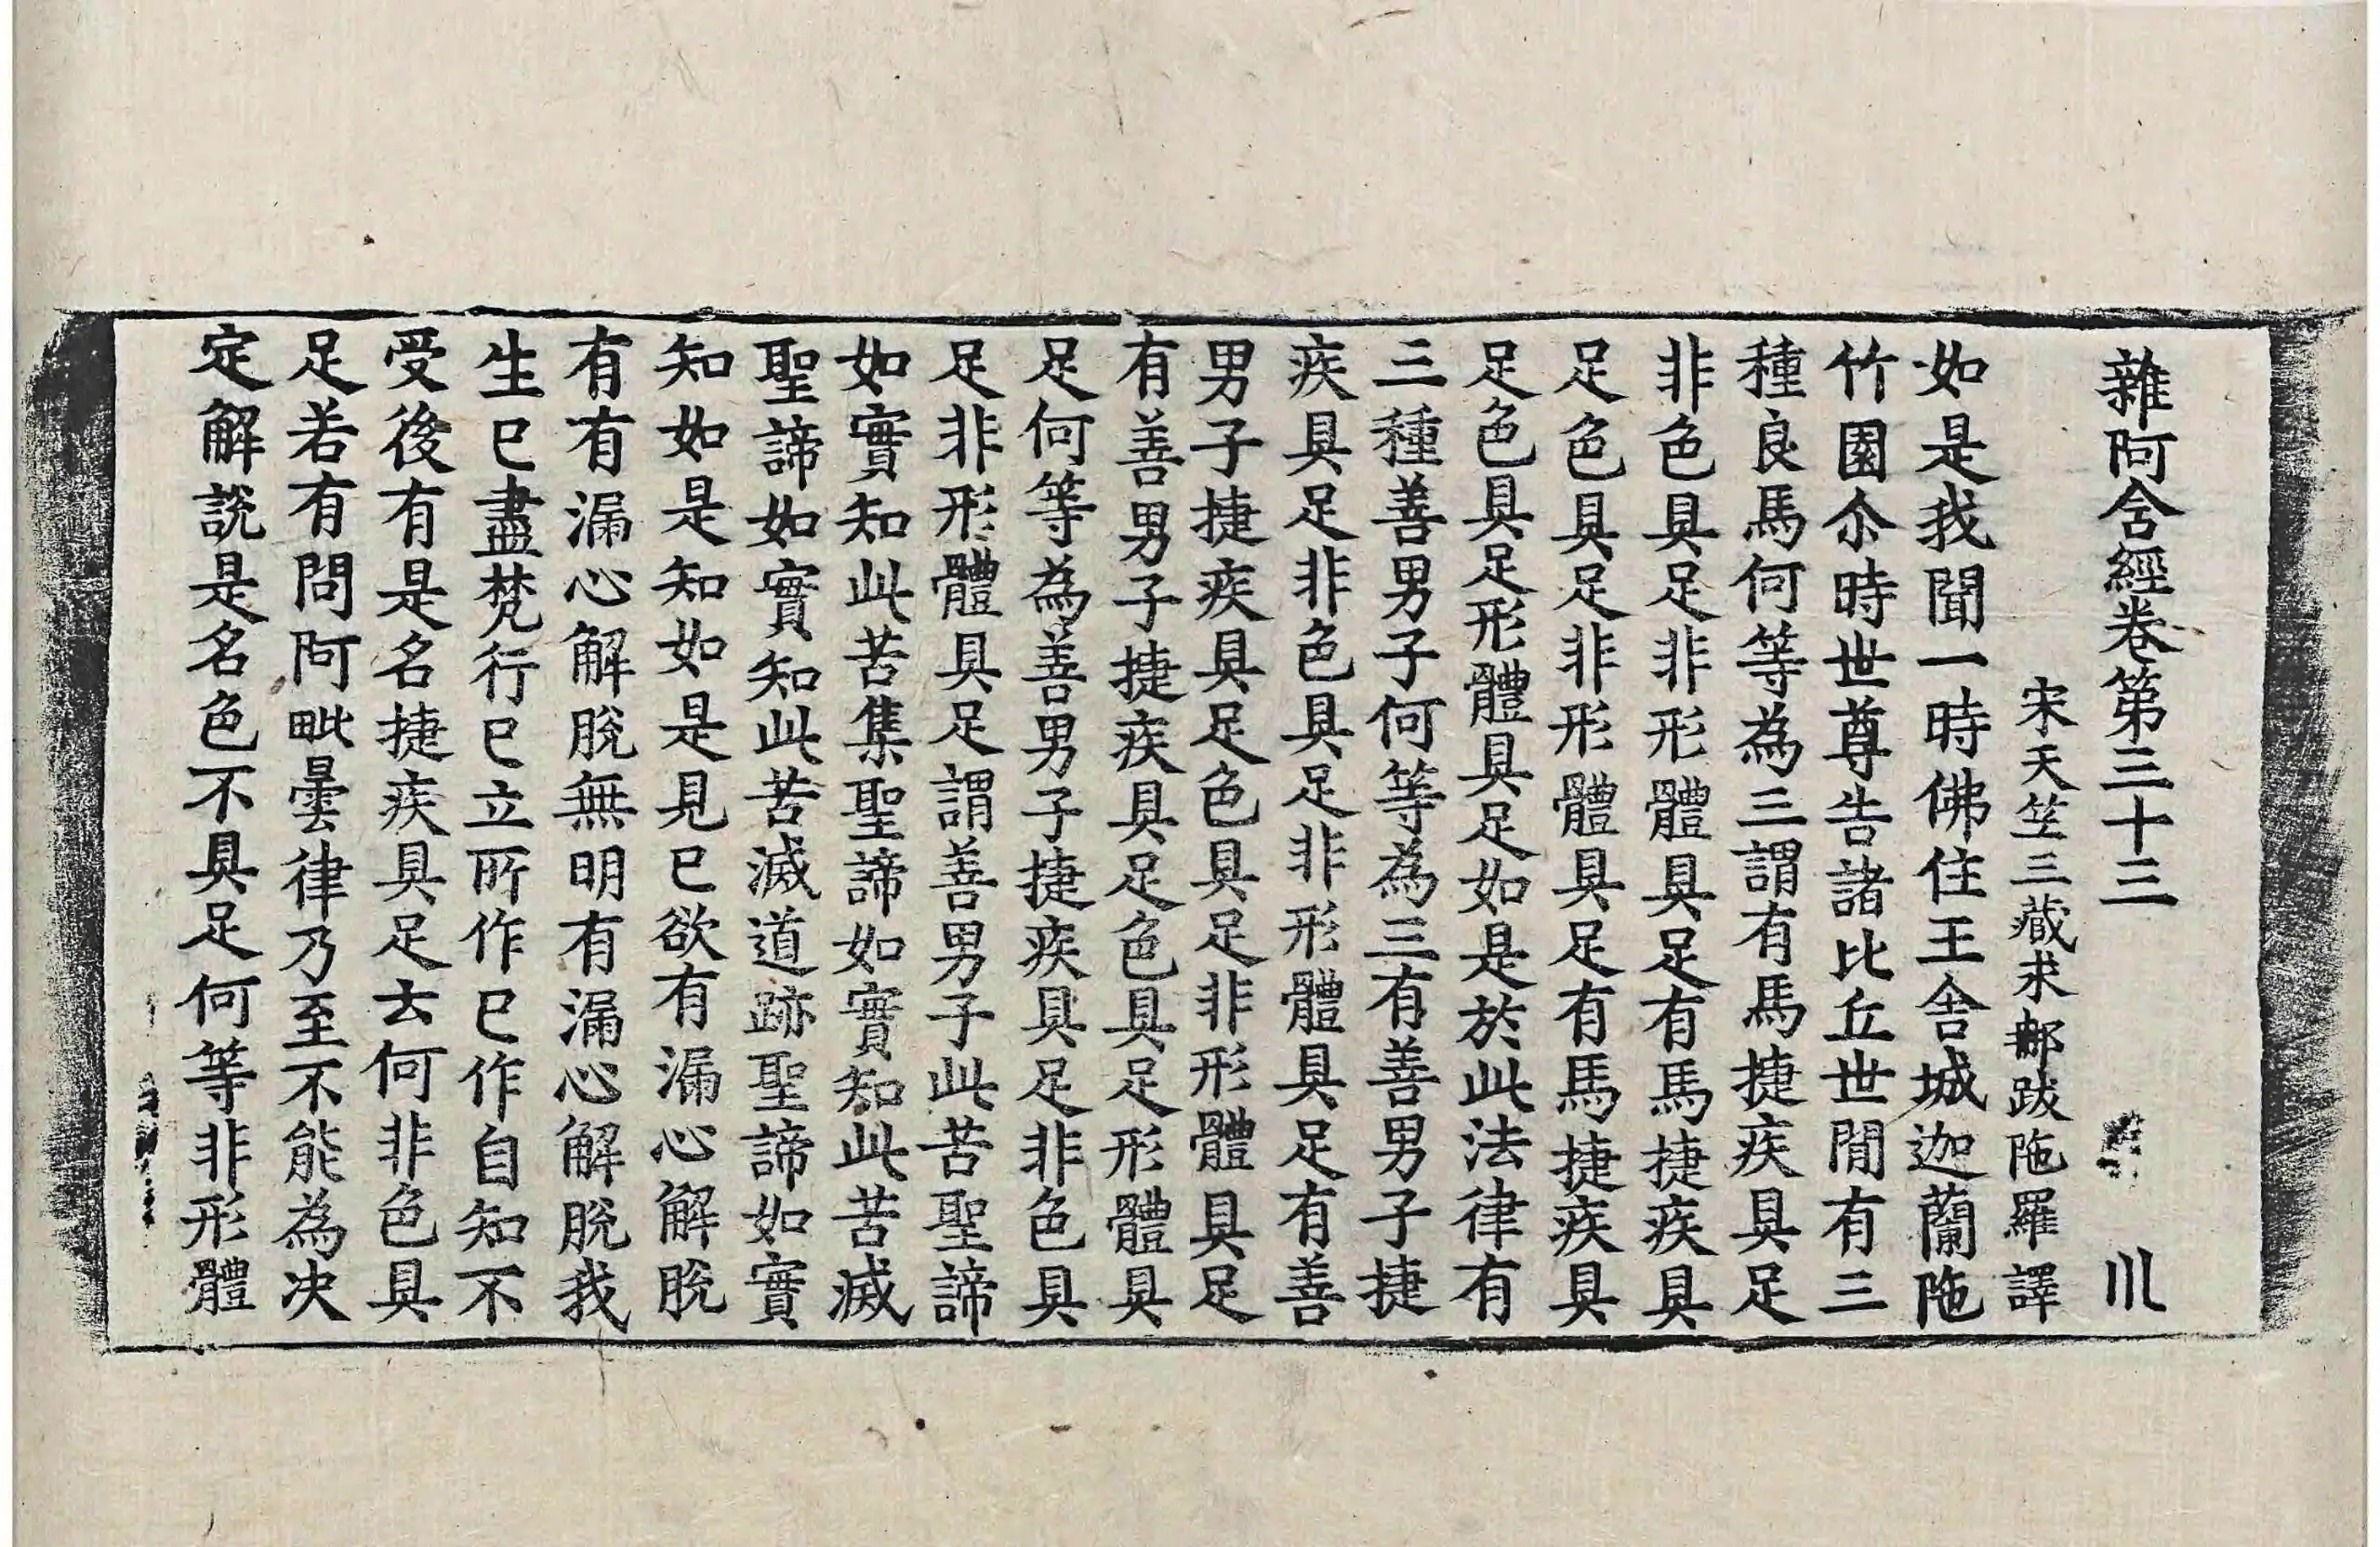 雜阿含經卷第三十三 川
宋天竺三藏求郍跋陁羅譯
如是我聞一時佛住王舍城迦蘭陁
竹園尒時世尊告諸比丘世間有三
種良馬何等為三謂有馬捷疾具足
非色具足非形體具足有馬捷疾具
足色具足非形體具足有馬捷疾具
足色具足形體具足如是於此法律有
三種善男子何等為三有善男子捷
疾具足非色具足非形體具足有善
男子捷疾具足色具足非形體具足
有善男子捷疾具足色具足形體具
足何等為善男子捷疾具足非色具
足非形體具足謂善男子此苦聖諦
如實知此苦集聖諦如實知此苦滅
聖諦如實知此苦滅道跡聖諦如實
知如是知如是見已欲有漏心解脫
有有漏心解脫無明有漏心解脫我
生已盡梵行已立所作已作自知不
受後有是名捷疾具足云何非色具
足若有問阿毗曇律乃至不能為决
定解說是名色不具足何等非形體